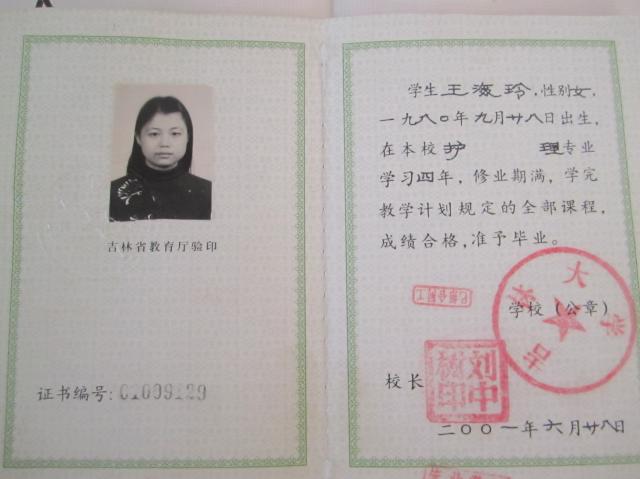 吉林省教育厅验印
证书编号:01009129
学生王海玲,性别女,
一九八〇年九月廿八日出生,
在本校护 理专业
学习四年,修业期满,学完
教学计划规定的全部课程,
成绩合格,准予毕业。
吉林大学
学校(公章)
校长
刘中树印
二〇〇一年六月廿八日